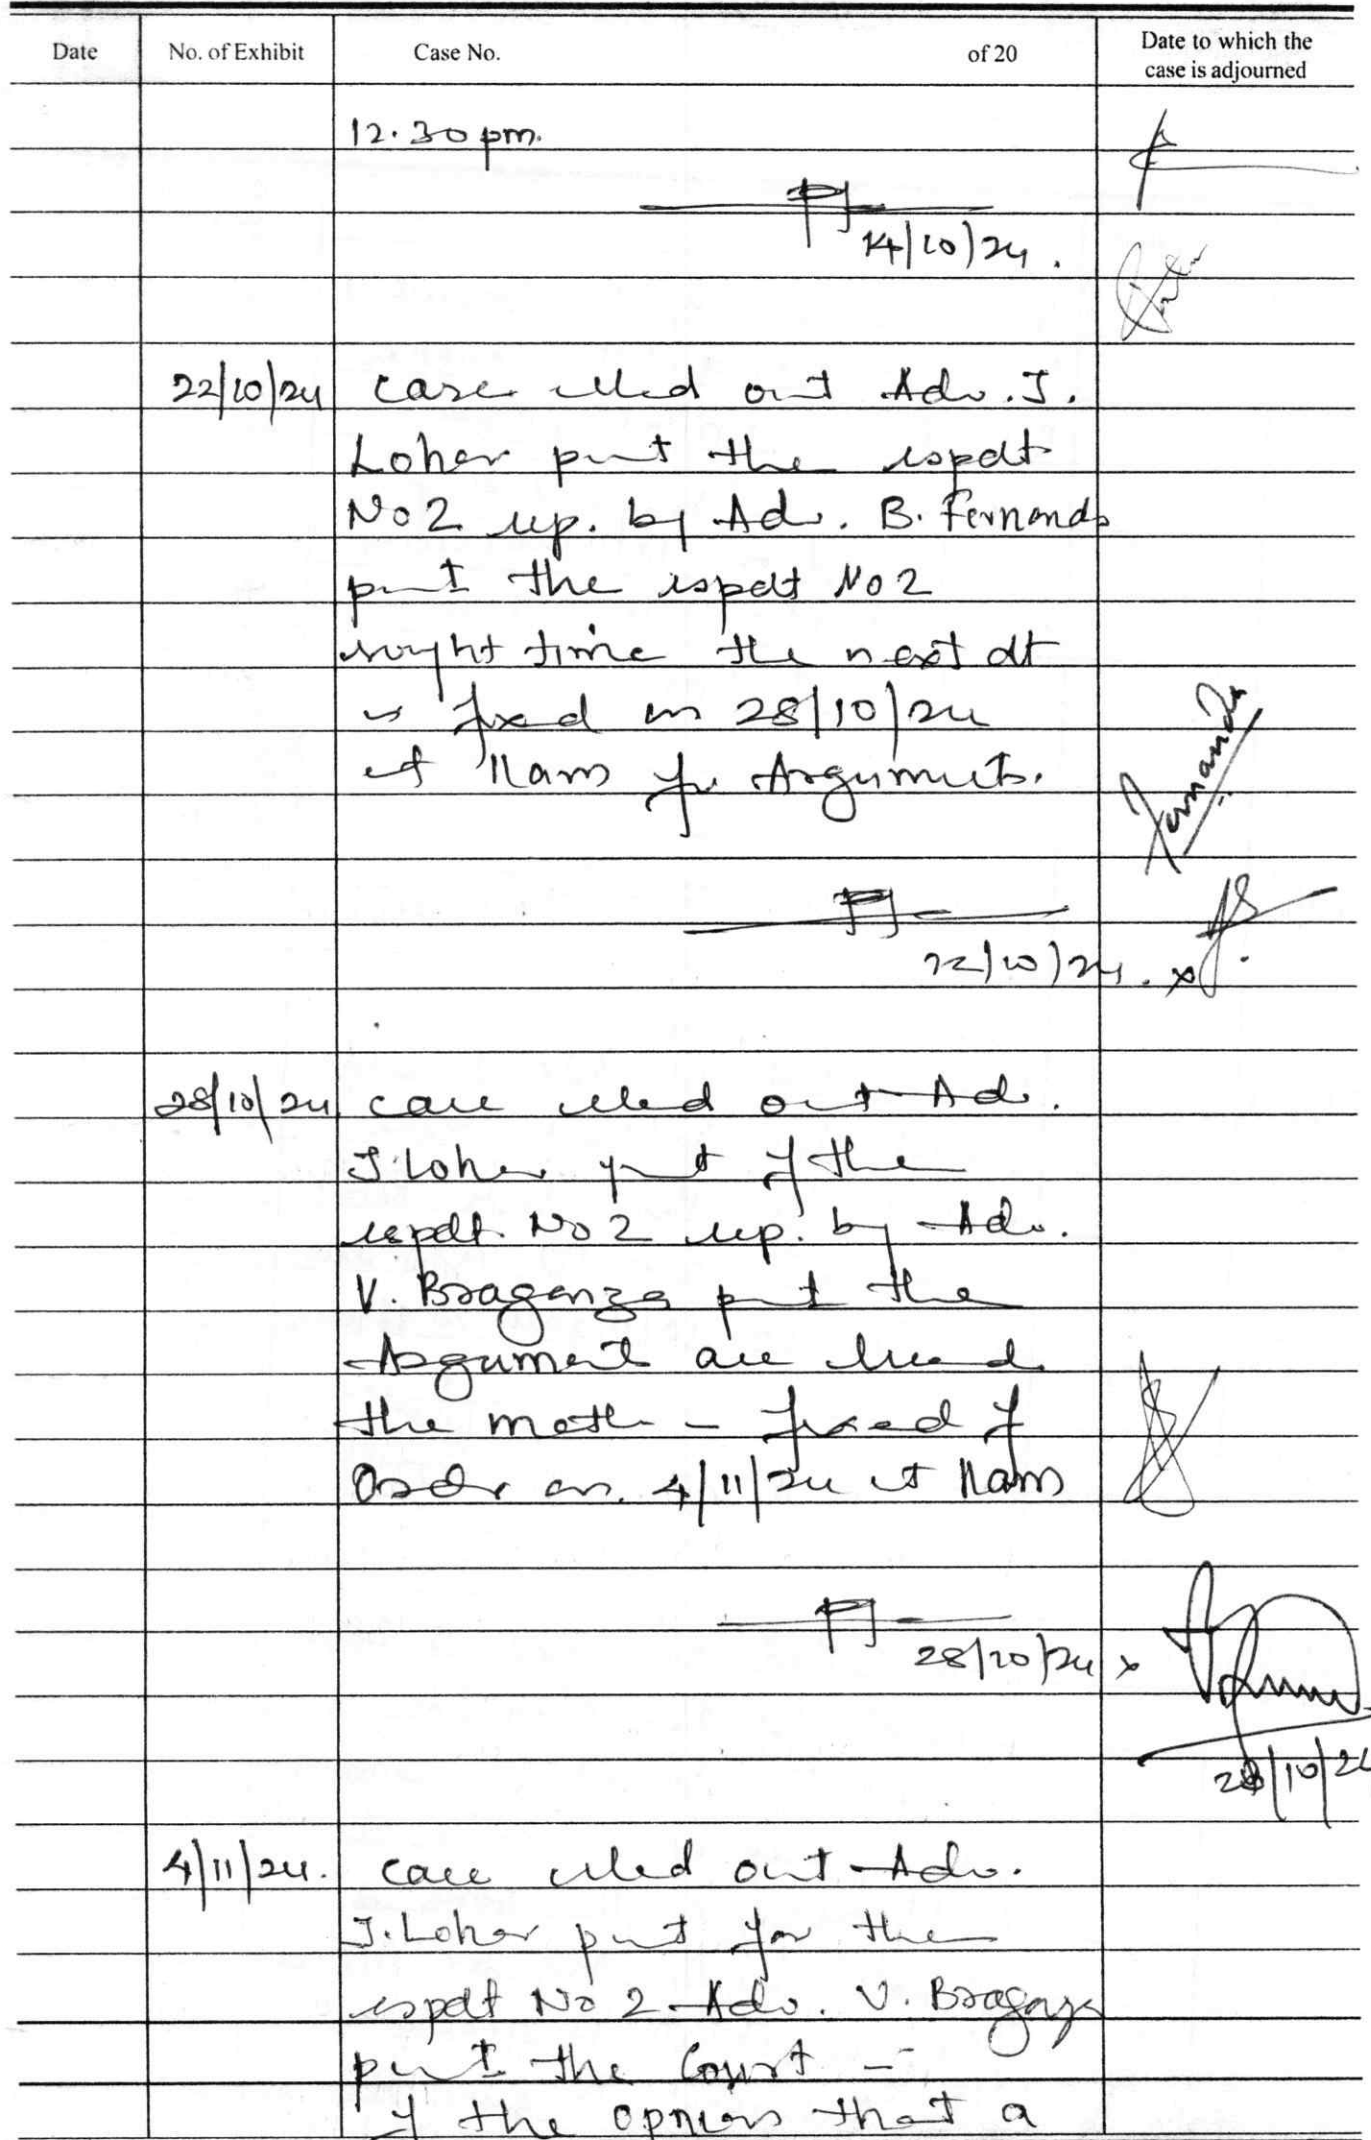 Date No. of Exhibit Case No. of 20 Date to which the
case is adjourned
12.30 pm.
14/10/24.
22/10/24 Case called out Adv. J.
Lohar put the respdt
No 2 rep. by Adv. B. Fernands
put the respdt No 2
sought time the next dt
is fixed on 28/10/24
at 11am for Arguments.
Fernandes
22/10/24. x
28/10/24 case called out Adv.
J. Lohar put of the
respdt. No 2 rep. by Adv.
V. Braganza put the
Argument are heard
the matter fixed for
Order on. 4/11/24 at 11am
28/10/24 x
28/10/24
4/11/24. case called out Adv.
J. Lohar put for the
respdt No 2 Adv. V. Braganza
put the Court -
of the opnion that a